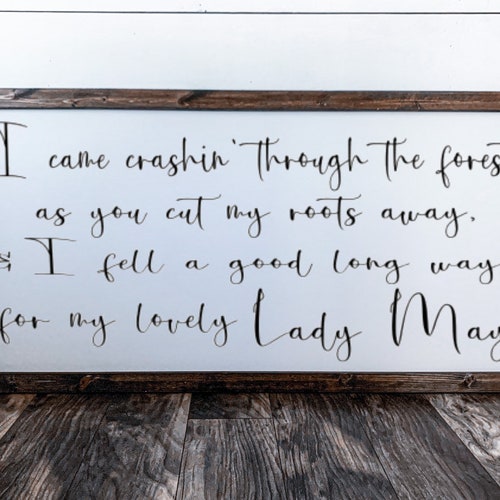 I came crashin' through the forest
as you cut my roots away,
& I fell a good long way
for my lovely Lady May